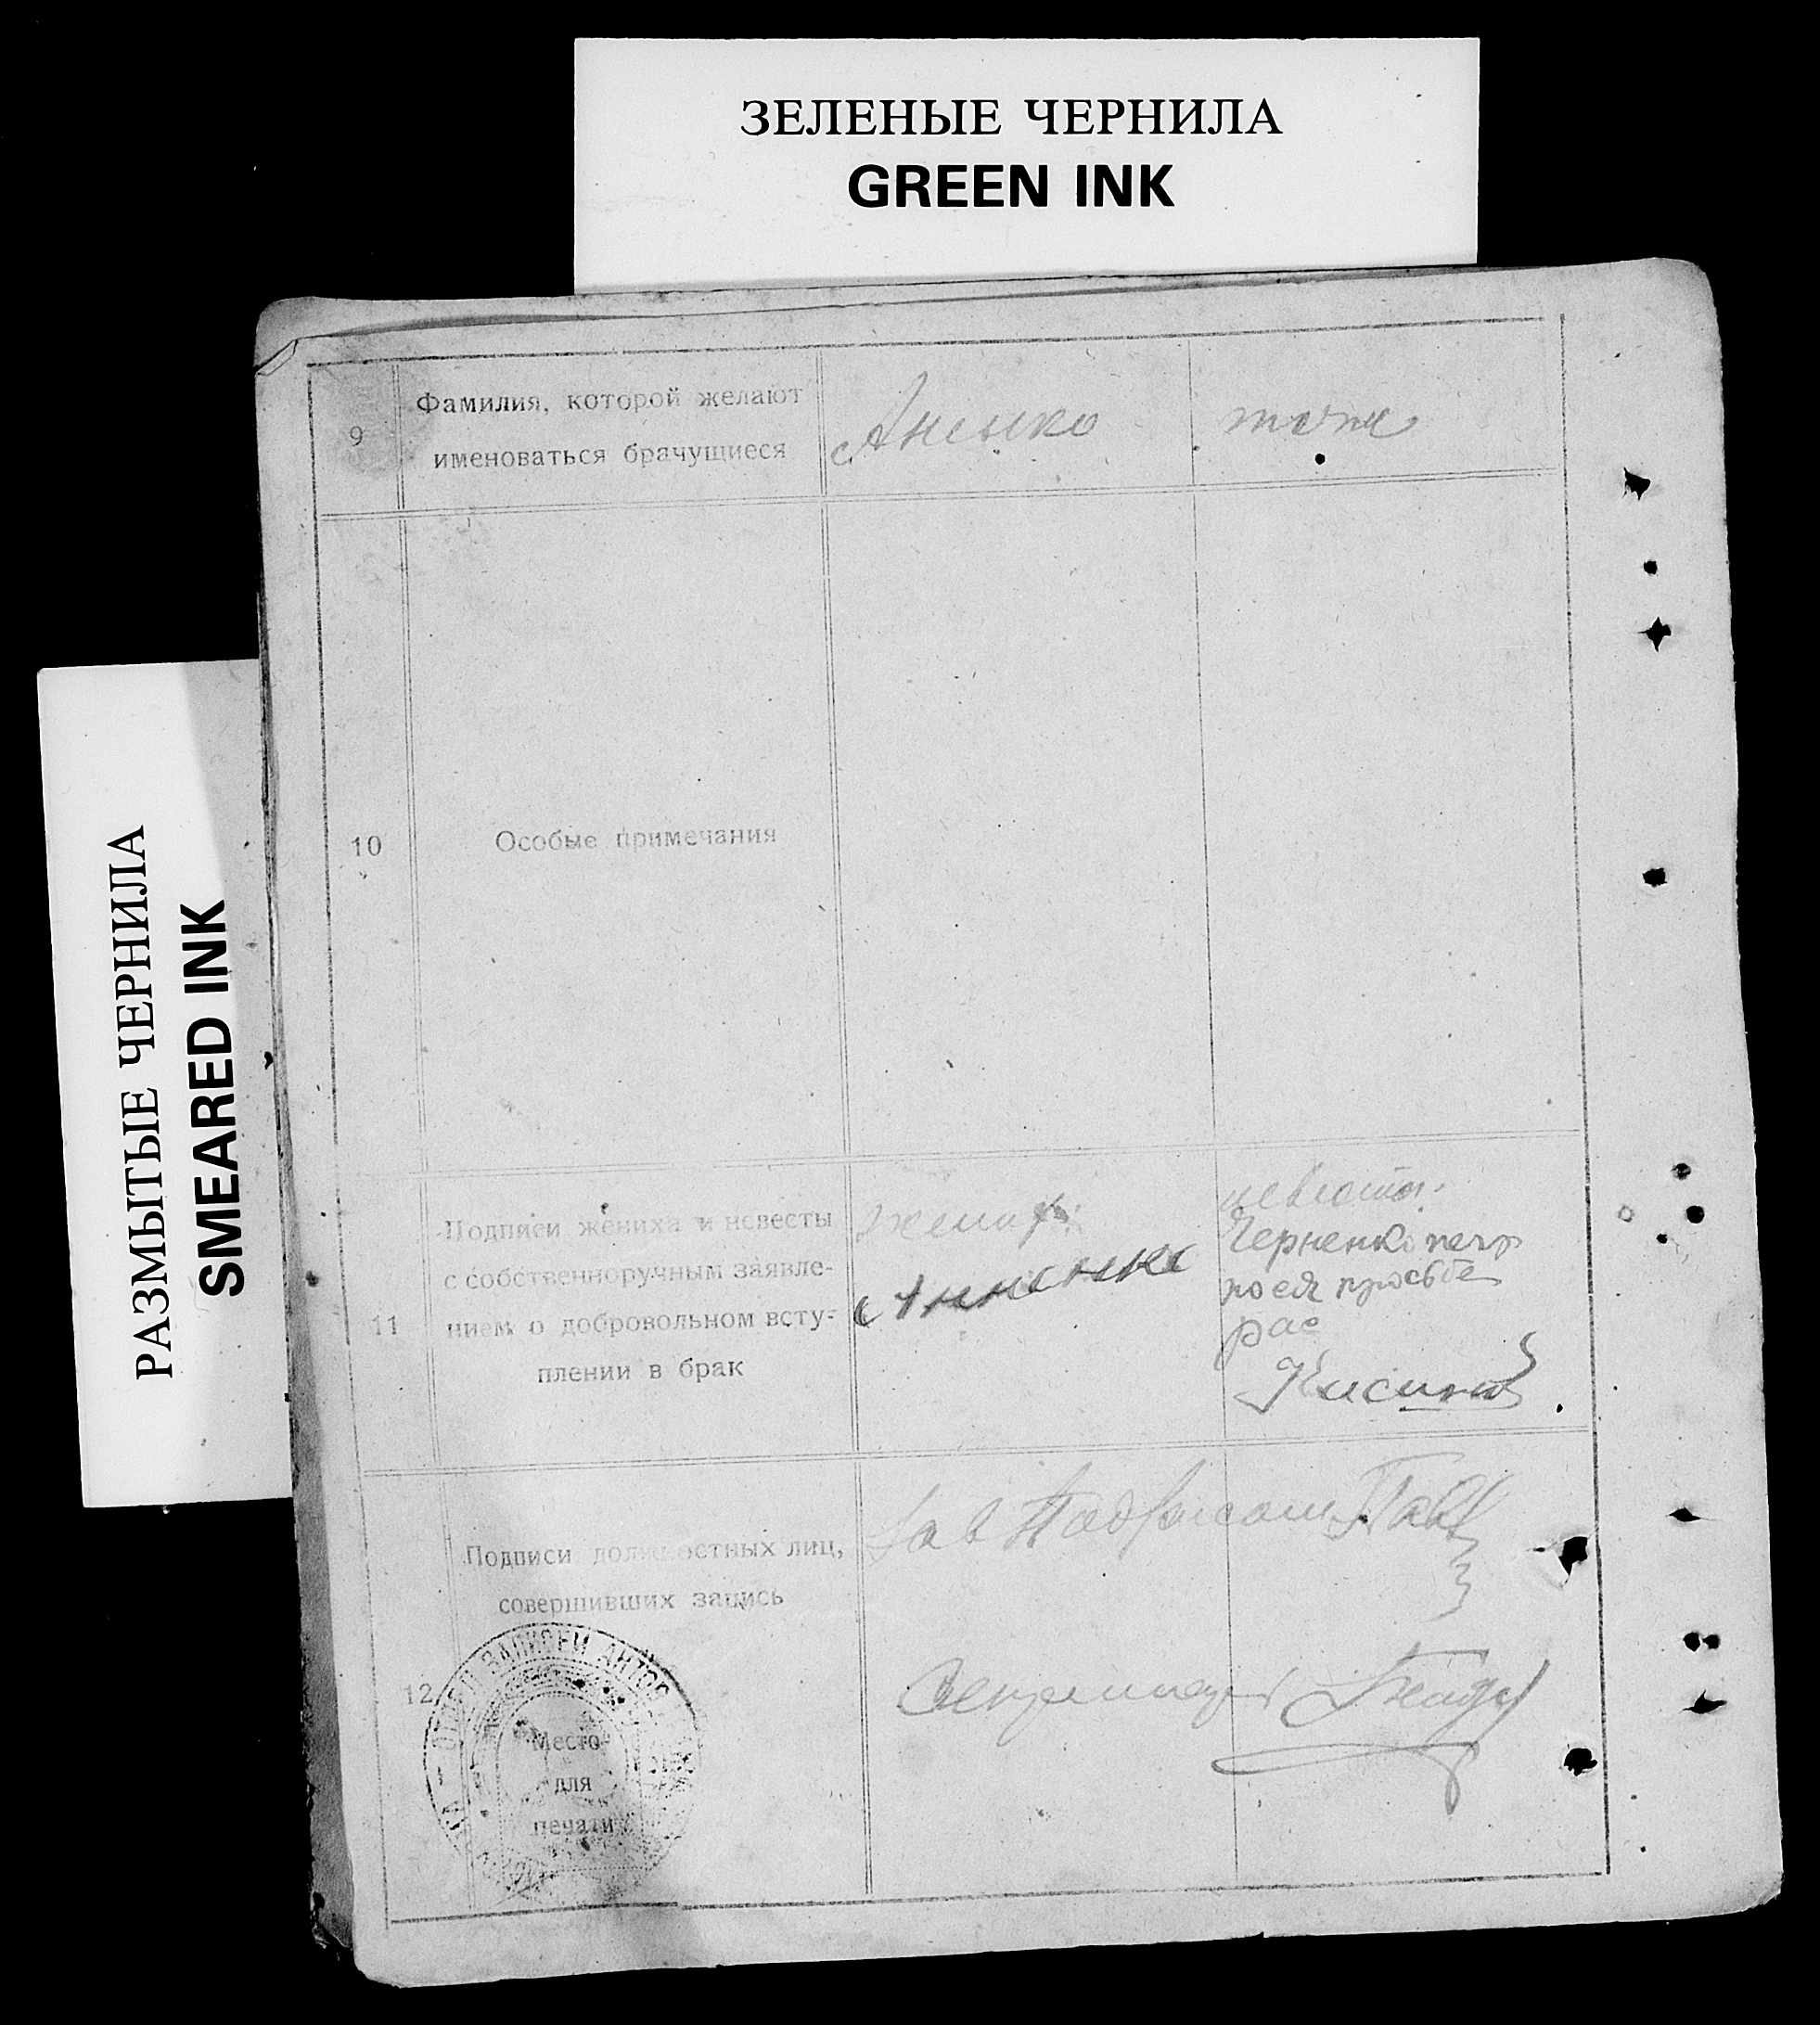 ЗЕЛЕНЫЕ ЧЕРНИЛА
GREEN INK
РАЗМЫТЫЕ ЧЕРНИЛА
SMEARED INK
9
Фамилия, которой желают
именоваться брачущиеся
Аненко
тоже
10
Особые примечания
11
Подписи жениха и невесты
с собственноручным заявле-
нием о добровольном всту-
плении в брак
жених:
Анненко
невеста:
Черненко негр
по ея просьбе
рас
12
Подписи должностных лиц,
совершивших запись
Зав Подотделом
Секретарь
ЗАПИСЕЙ АКТОВ
Место
для
печати